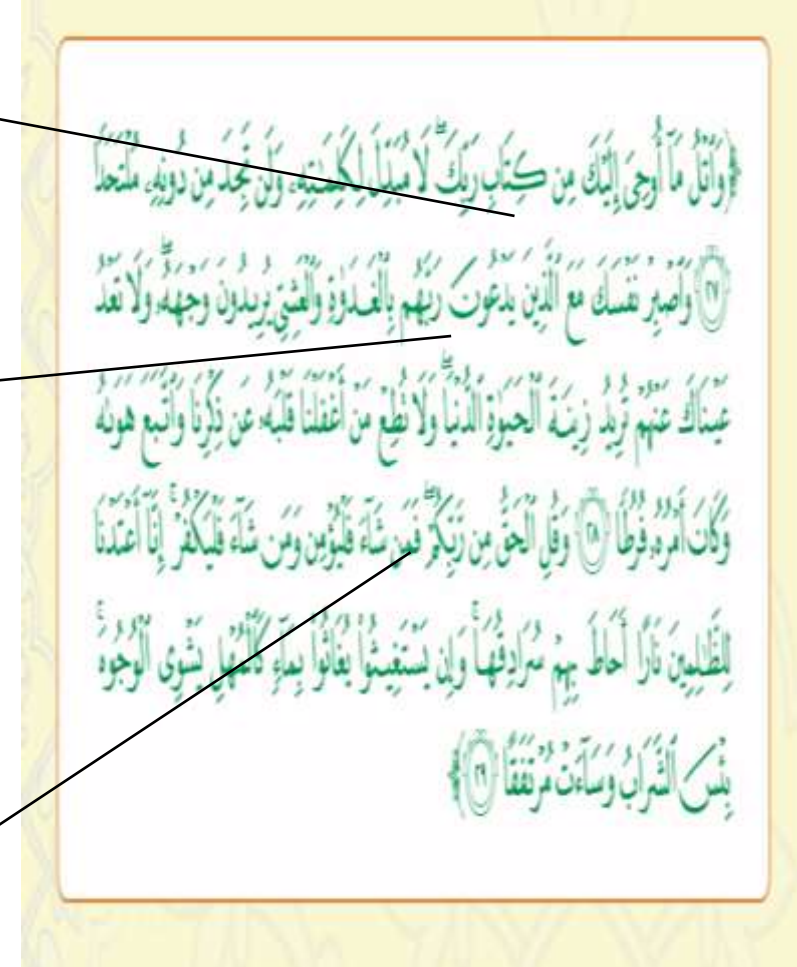 ﴿وَٱتْلُ مَآ أُوحِىَ إِلَيْكَ مِن كِتَابِ رَبِّكَ ۖ لَا مُبَدِّلَ لِكَلِمَٰتِهِۦ وَلَن تَجِدَ مِن دُونِهِۦ مُلْتَحَدًا
٢٧ وَٱصْبِرْ نَفْسَكَ مَعَ ٱلَّذِينَ يَدْعُونَ رَبَّهُم بِٱلْغَدَوٰةِ وَٱلْعَشِىِّ يُرِيدُونَ وَجْهَهُۥ ۖ وَلَا تَعْدُ
عَيْنَاكَ عَنْهُمْ تُرِيدُ زِينَةَ ٱلْحَيَوٰةِ ٱلدُّنْيَا ۖ وَلَا تُطِعْ مَنْ أَغْفَلْنَا قَلْبَهُۥ عَن ذِكْرِنَا وَٱتَّبَعَ هَوَىٰهُ
وَكَانَ أَمْرُهُۥ فُرُطًا ٢٨ وَقُلِ ٱلْحَقُّ مِن رَّبِّكُمْ ۖ فَمَن شَآءَ فَلْيُؤْمِن وَمَن شَآءَ فَلْيَكْفُرْ ۚ إِنَّآ أَعْتَدْنَا
لِلظَّٰلِمِينَ نَارًا أَحَاطَ بِهِمْ سُرَادِقُهَا ۚ وَإِن يَسْتَغِيثُوا۟ يُغَاثُوا۟ بِمَآءٍ كَٱلْمُهْلِ يَشْوِى ٱلْوُجُوهَ ۚ
بِئْسَ ٱلشَّرَابُ وَسَآءَتْ مُرْتَفَقًا ٢٩﴾